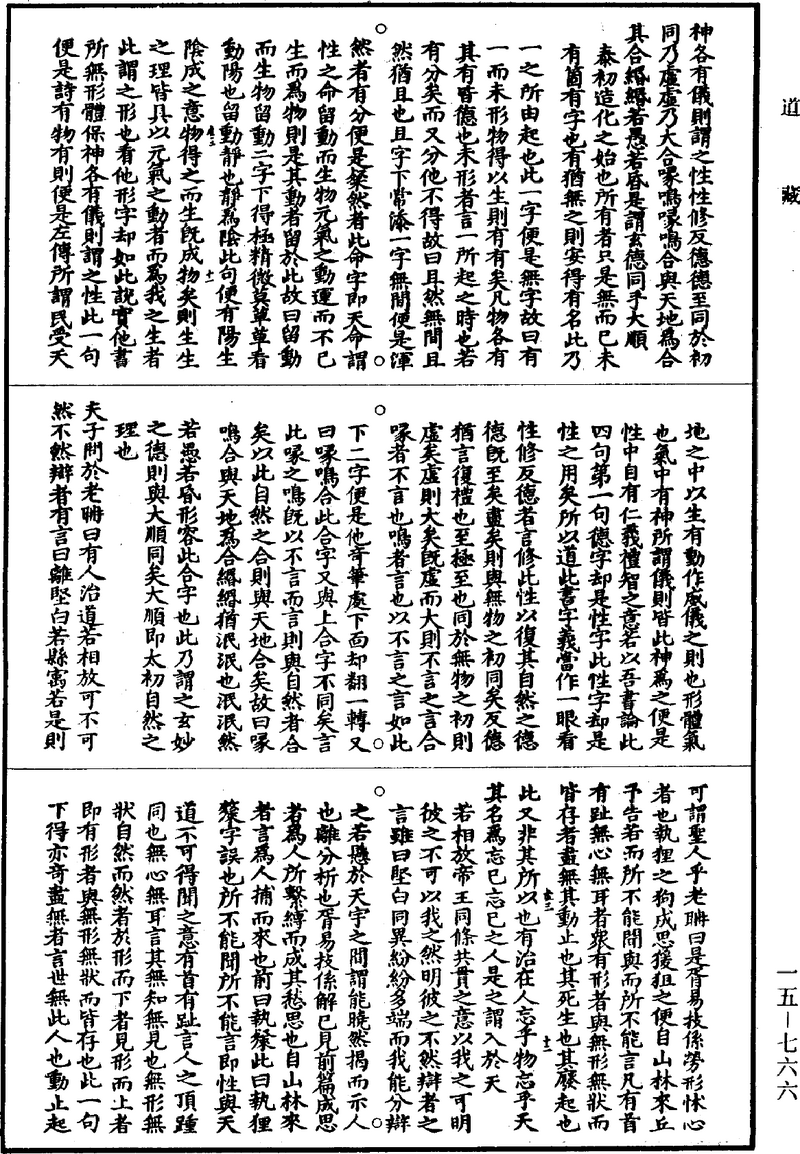 道藏
神各有儀則謂之性性修反德德至同於初
同乃虛虛乃大合喙鳴喙鳴合與天地為合
其合緡緡若愚若昏是謂玄德同乎大順
泰初造化之始也所有者只是無而已未
有箇有字也有猶無之則安得有名此乃
一之所由起也此一字便是無字故曰有
一而未形物得以生則有有矣凡物各有
其有皆德也未形者言一所起之時也若
有分矣而又分他不得故曰且然無間且
然猶且也且字下常添一字無間便是渾
然者有分便是粲然者此命字即天命謂
性之命留動而生物元氣之動運而不已
生而為物則是其動者留於此故曰留動
而生物留動二字下得極精微莫草草看
動陽也留動靜也靜為陰此句便有陽生
陰成之意物得之而生既成物矣則生生
之理皆具以元氣之動者而為我之生者
此謂之形也看他形字却如此說實他書
所無形體保神各有儀則謂之性此一句
便是詩有物有則便是左傳所謂民受天
地之中以生有動作威儀之則也形體氣
也氣中有神所謂儀則皆此神為之便是
性中自有仁義禮智之意若以吾書論此
四句第一句德字却是性字此性字却是
性之用矣所以道此書字義當作一眼看
性修反德者言修此性以復其自然之德
德既至矣盡矣則與無物之初同矣反德
猶言復禮也至極至也同於無物之初則
虛矣虛則大矣既虛而大則不言之言合
喙者不言也鳴者言也以不言之言如此
下二字便是他奇筆處下面却翻一轉又
曰喙鳴合此合字又與上合字不同矣言
此喙之鳴既以不言而言則與自然者合
矣以此自然之合則與天地合矣故曰喙
鳴合與天地為合緡緡猶泯泯也泯泯然
若愚若昏形容此合字也此乃謂之玄妙
之德則與大順同矣大順即太初自然之
理也
夫子問於老聃曰有人治道若相放可不可
然不然辯者有言曰離堅白若縣寓若是則
可謂聖人乎老聃曰是胥易技係勞形怵心
者也執狸之狗成思猨狙之便自山林來丘
予告若而所不能聞與而所不能言凡有首
有趾無心無耳者衆有形者與無形無狀而
皆存者盡無其動止也其死生也其廢起也
此又非其所以也有治在人忘乎物忘乎天
其名為忘己忘己之人是之謂入於天
若相放帝王同條共貫之意以我之可明
彼之不可以我之然明彼之不然辯者之
言雖曰堅白同異紛紛多端而我能分辯
之若懸於天宇之間謂能曉然揭而示人
也離分析也胥易技係解已見前篇成思
者為人所繫縛而成其愁思也自山林來
者言為人捕而來也前曰執斄此曰執狸
斄字誤也所不能聞所不能言即性與天
道不可得聞之意有首有趾言人之頂踵
同也無心無耳言其無知無見也無形無
狀自然而然者於形而下者見形而上者
即有形者與無形無狀而皆存也此一句
下得亦奇盡無者言世無此人也動止起
一五—七六六